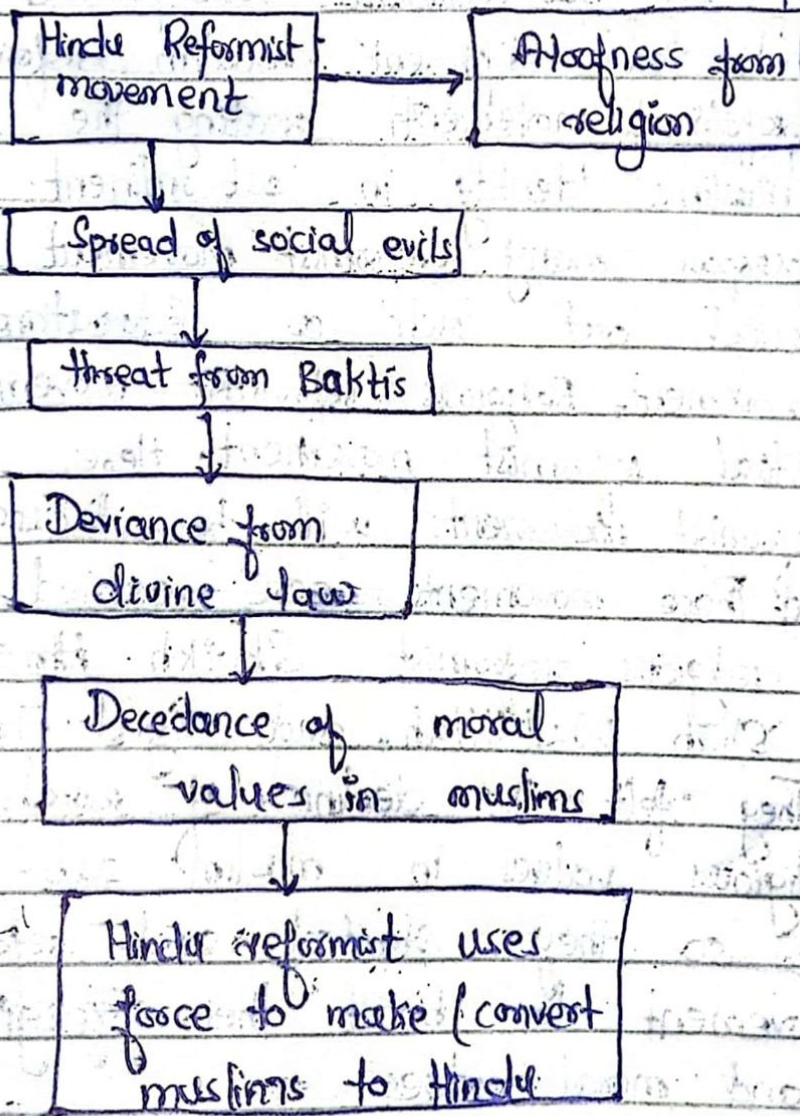 Hindu Reformist
movement
Aloofness from
religion
Spread of social evils
threat from Baktis
Deviance from
divine law
Decedance of moral
values in muslims
Hindu reformist uses
force to make (convert
muslims to Hindu